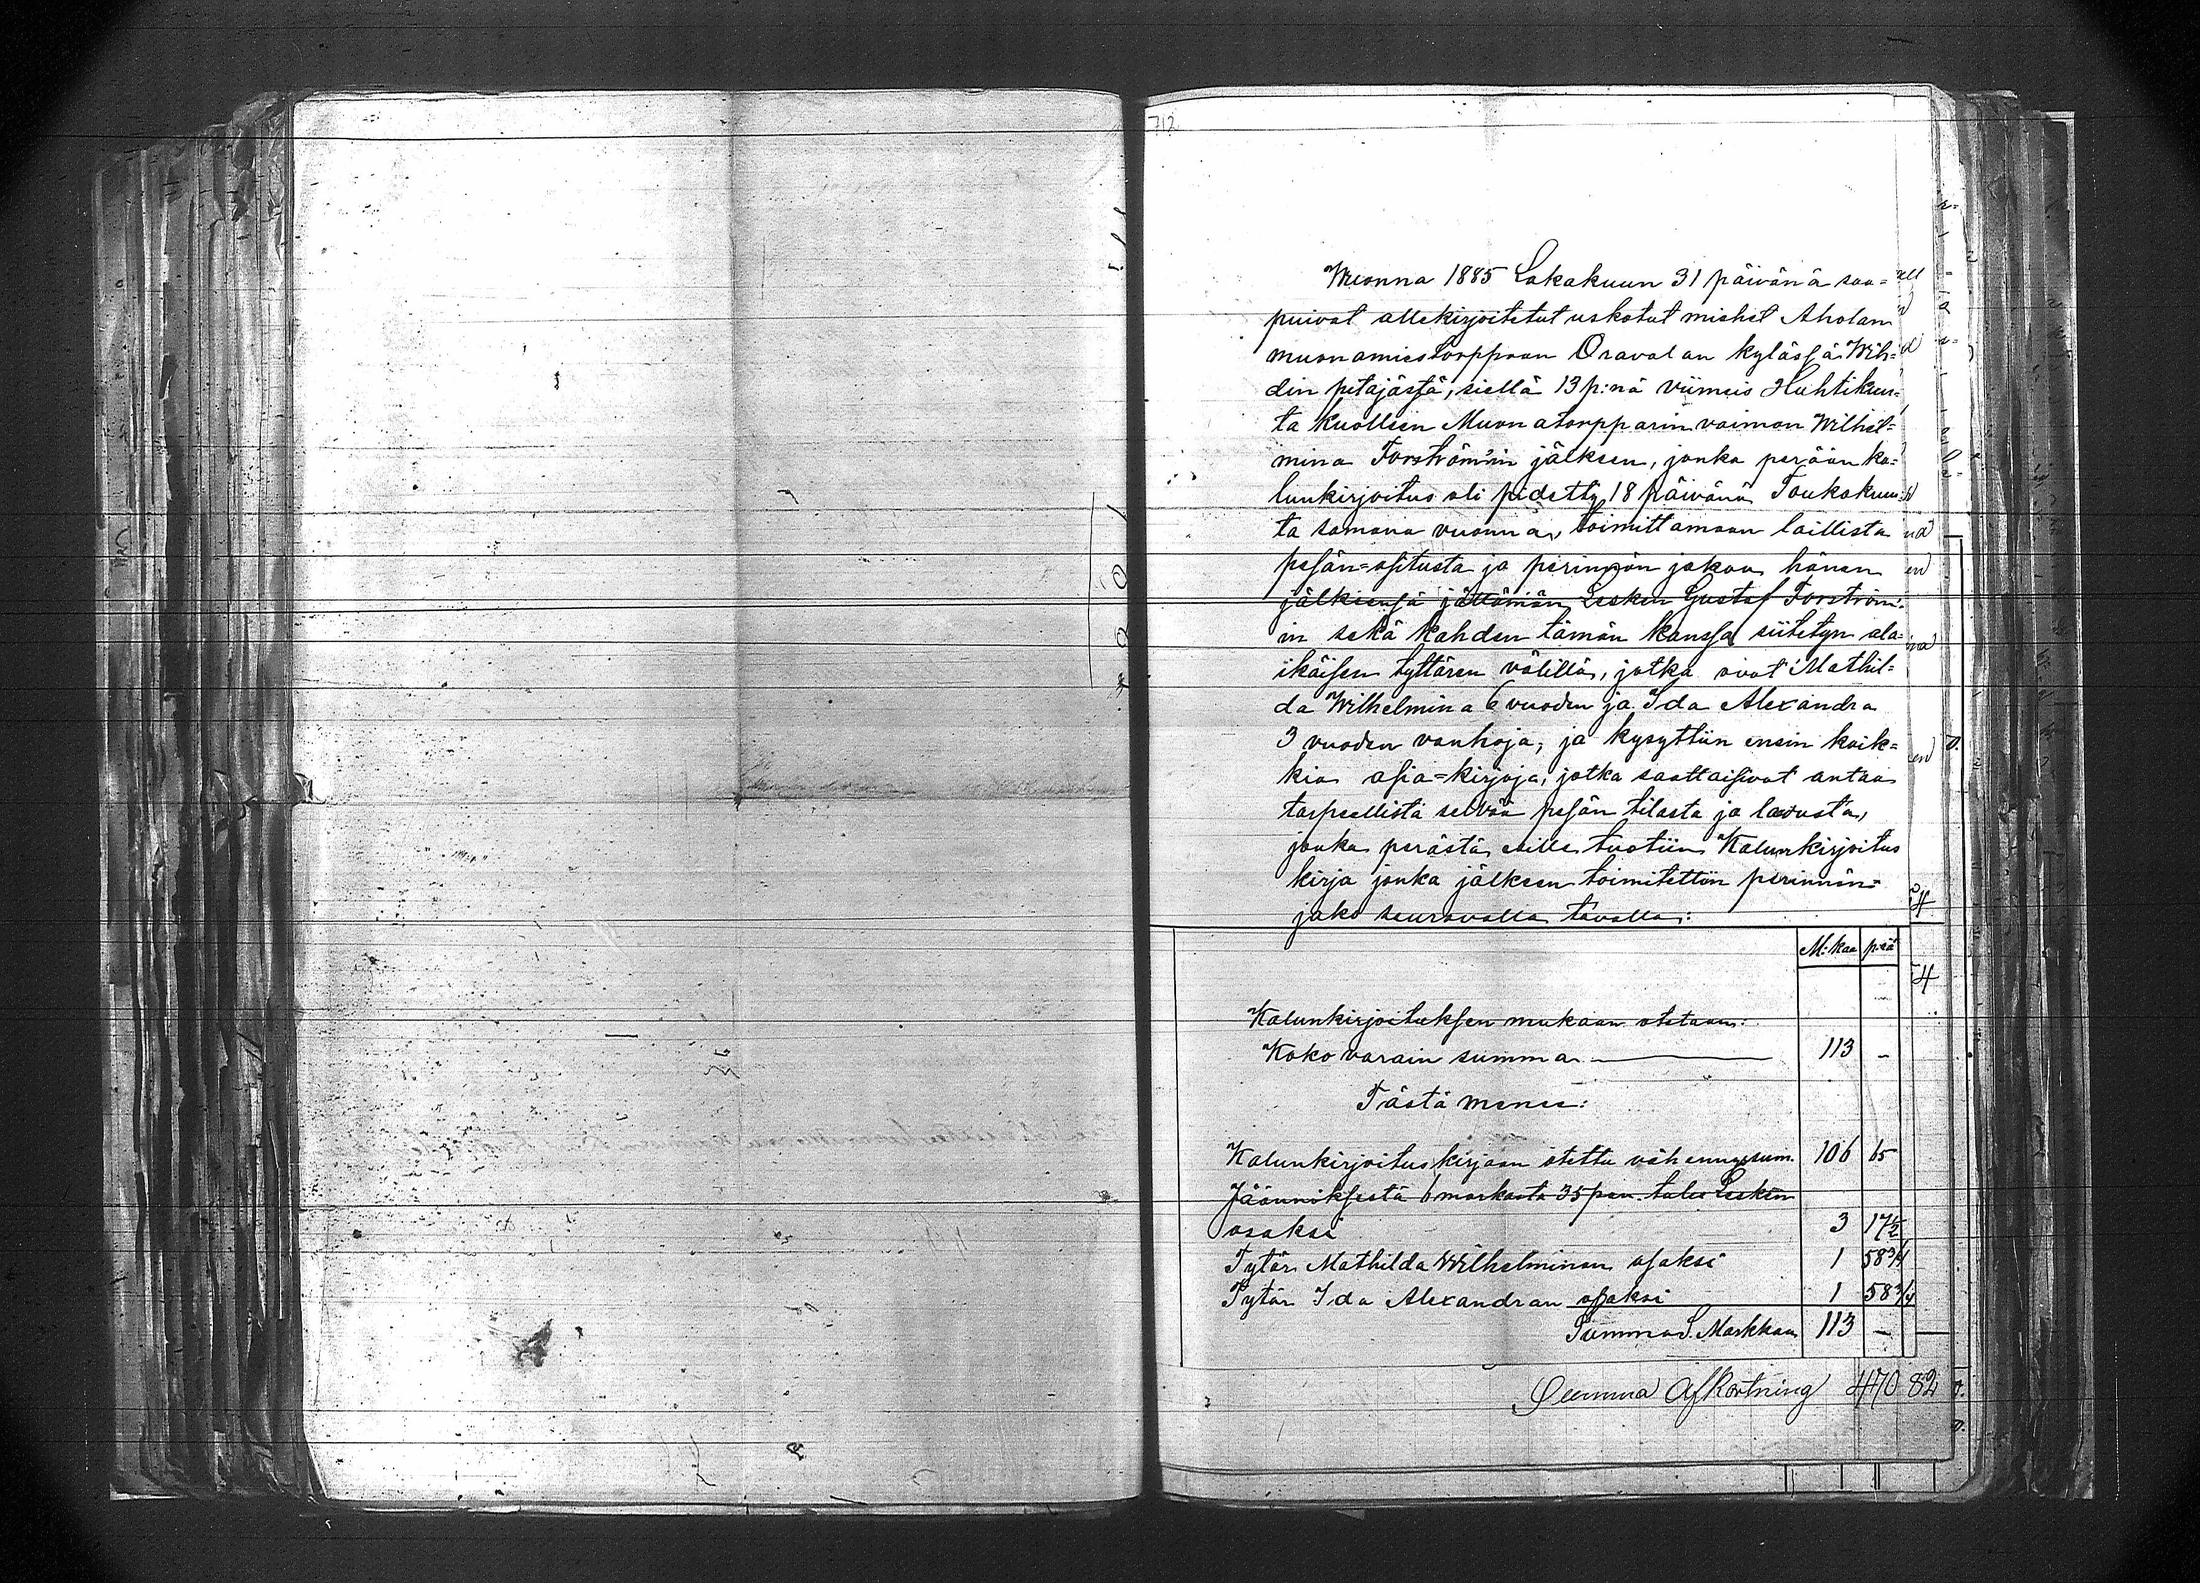 712
Wuonna 1885 Lokakuun 31 päivänä saa=
puivat allekirjoitetut uskotut miehet Aholan
muonamiestorppaan Oravalan kylässä Wih=
din pitäjässä, siellä 13 p:nä viimeis Huhtikuu=
ta kuolleen Muonatorpparin vaimon Wilhel=
mina Forström'in jälkeen, jonka perään ka=
lunkirjoitus oli pidetty 18 päivänä Toukokuu=
ta samana vuonna, toimittamaan laillista
pesän=ositusta ja perinnön jakoa hänen
jälkeensä jättämän Lesken Gustaf Forström'=
in sekä kahden tämän kanssa siitetyn ala=
ikäisen tyttären välillä, jotka ovat Mathil=
da Wilhelmina 6 vuoden ja Ida Alexandra
3 vuoden vanhoja, ja kysyttiin ensin kaik=
kia asia=kirjoja, jotka saattaisivat antaa
tarpeellista selvää pesän tilasta ja laadusta,
jonka perästä esille tuotiin Kalunkirjoitus
kirja jonka jälkeen toimitettiin perinnön=
jako seuraavalla tavalla:
M:kaa p:iä
Kalunkirjoituksen mukaan otetaan:
Koko varain summa 113 -
Tästä menee:
Kalunkirjoituskirjaan otettu vähennyssum. 106 65
Jäännöksestä 6 markasta 35 pen. tulee Lesken
osaksi 3 17½
Tytär Mathilda Wilhelminan osaksi 1 58¾
Tytär Ida Alexandran osaksi 1 58¾
Summa S. Markkaa 113 -
Summa Afkortning 470 82